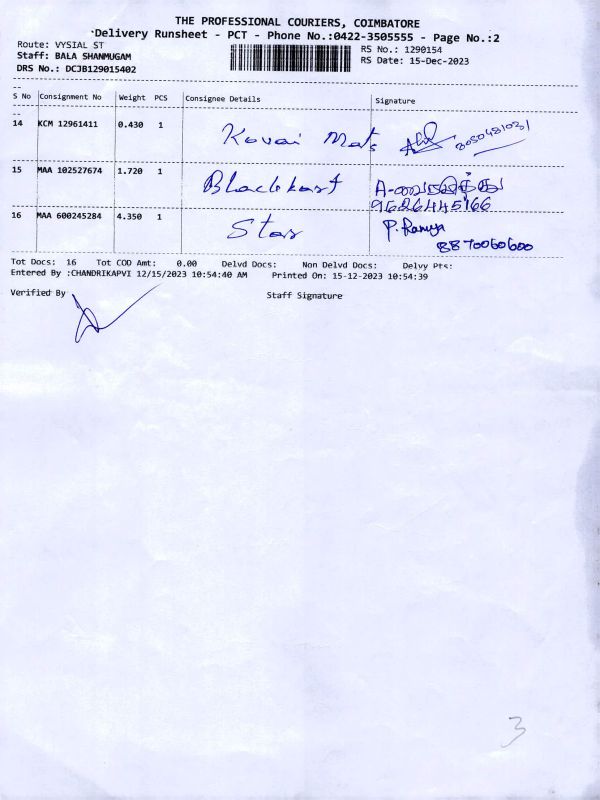 THE PROFESSIONAL COURIERS, COIMBATORE
Delivery Runsheet - PCT - Phone No.:0422-3505555 - Page No.:2
Route: VYSIAL ST
RS No.: 1290154
Staff: BALA SHANMUGAM
RS Date: 15-Dec-2023
DRS No.: DCJB129015402
S No Consignment No Weight PCS Consignee Details Signature
14 KCM 12961411 0.430 1 Kovai Mats
15 MAA 102527674 1.720 1
9626445166
16 MAA 600245284 4.350 1 Star P. Ramya
8870060600
Tot Docs: 16 Tot COD Amt: 0.00 Delvd Docs: Non Delvd Docs: Delvy Pts:
Entered By :CHANDRIKAPVI 12/15/2023 10:54:40 AM Printed On: 15-12-2023 10:54:39
Verified By Staff Signature
3